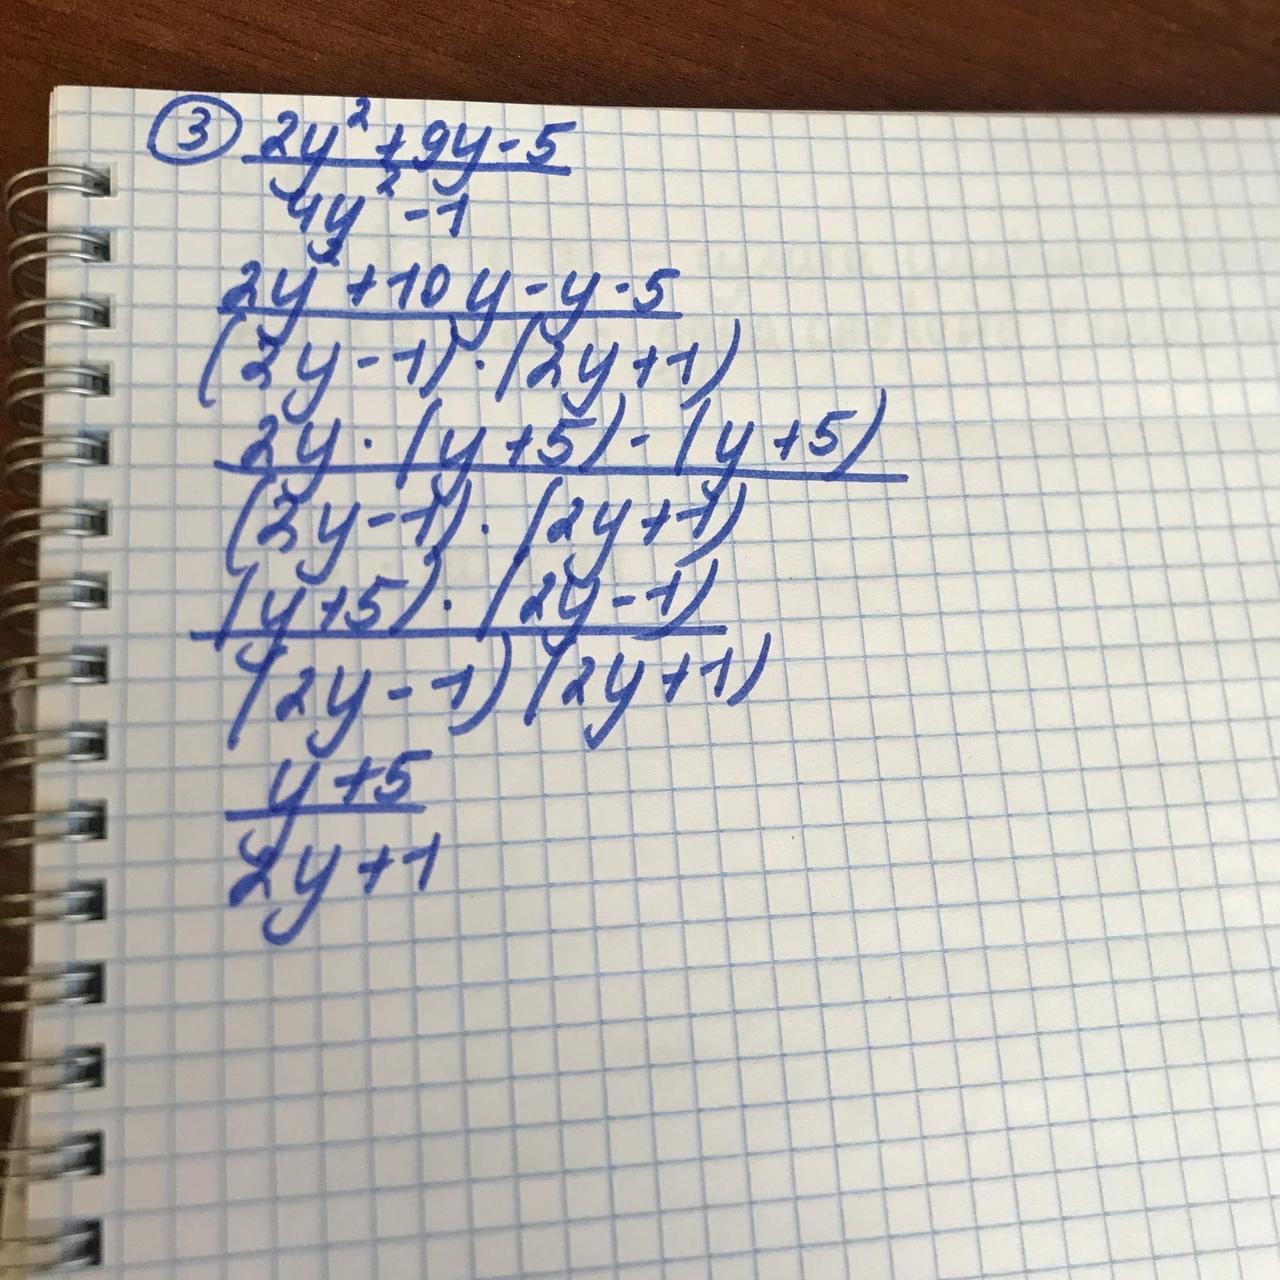 ③ 2y² + 9y - 5
4y² - 1
2y² + 10y - y - 5
(2y - 1) · (2y + 1)
2y · (y + 5) - (y + 5)
(2y - 1) · (2y + 1)
(y + 5) · (2y - 1)
(2y - 1) (2y + 1)
y + 5
2y + 1